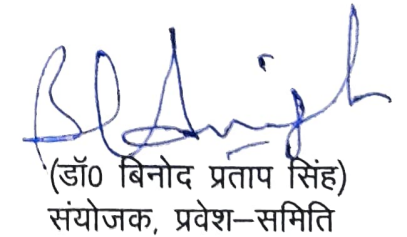 BP Singh
(डॉ0 बिनोद प्रताप सिंह)
संयोजक, प्रवेश–समिति